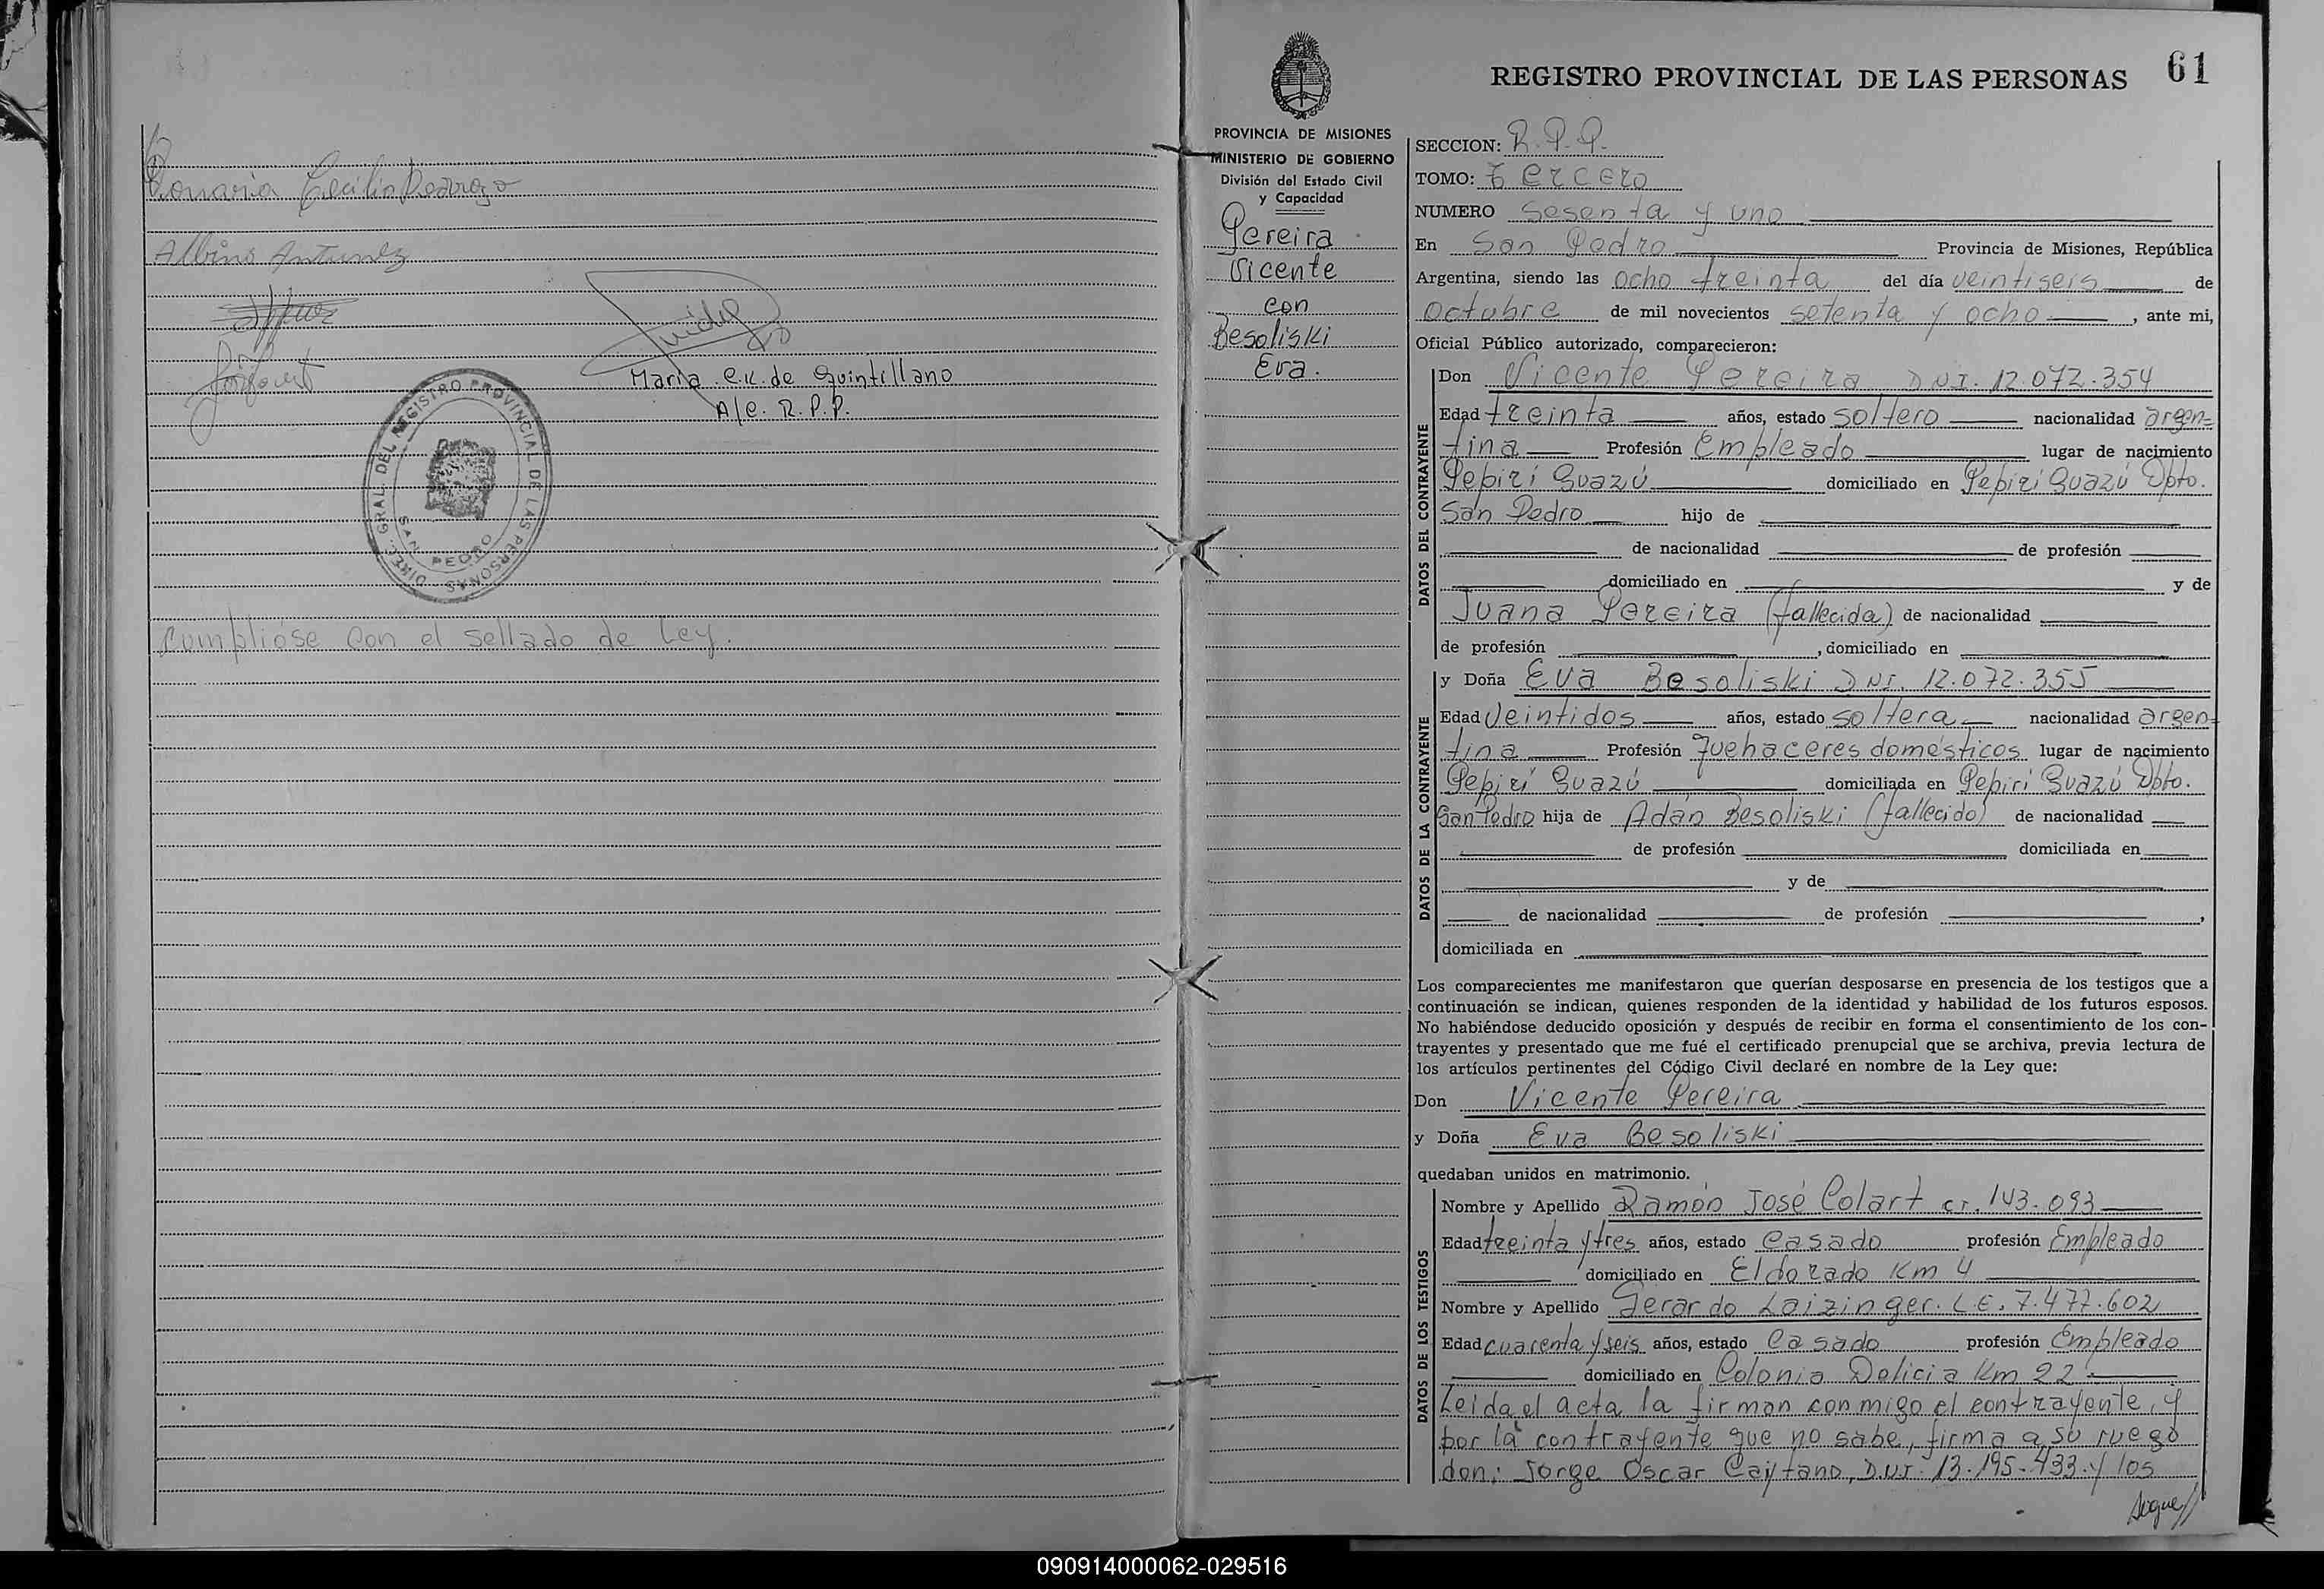 Cecilia Pedrozo
Albino Antunez
Maria C.K. de Quintillano
A/C. R.P.P.
DIREC. GRAL. DEL REGISTRO PROVINCIAL DE LAS PERSONAS
SAN PEDRO
Cumplióse con el sellado de Ley.
PROVINCIA DE MISIONES
MINISTERIO DE GOBIERNO
División del Estado Civil
y Capacidad
Pereira
Vicente
con
Besoliski
Eva.
REGISTRO PROVINCIAL DE LAS PERSONAS 61
SECCION: R.P.P.
TOMO: Tercero
NUMERO Sesenta y uno
En San Pedro Provincia de Misiones, República
Argentina, siendo las ocho treinta del día veintiseis de
Octubre de mil novecientos setenta y ocho, ante mi,
Oficial Público autorizado, comparecieron:
DATOS DEL CONTRAYENTE
Don Vicente Pereira DNI. 12.072.354
Edad treinta años, estado soltero nacionalidad argen=
tina Profesión Empleado lugar de nacimiento
Pepirí Guazú domiciliado en Pepirí Guazú Dpto.
San Pedro hijo de
de nacionalidad de profesión
domiciliado en y de
Juana Pereira (fallecida) de nacionalidad
de profesión , domiciliado en
DATOS DE LA CONTRAYENTE
y Doña Eva Besoliski DNI. 12.072.355
Edad Veintidos años, estado soltera nacionalidad argen=
tina Profesión Quehaceres domésticos lugar de nacimiento
Pepirí Guazú domiciliada en Pepirí Guazú Dpto.
San Pedro hija de Adán Besoliski (fallecido) de nacionalidad
de profesión domiciliada en
y de
de nacionalidad de profesión ,
domiciliada en
Los comparecientes me manifestaron que querían desposarse en presencia de los testigos que a
continuación se indican, quienes responden de la identidad y habilidad de los futuros esposos.
No habiéndose deducido oposición y después de recibir en forma el consentimiento de los con-
trayentes y presentado que me fué el certificado prenupcial que se archiva, previa lectura de
los artículos pertinentes del Código Civil declaré en nombre de la Ley que:
Don Vicente Pereira
y Doña Eva Besoliski
quedaban unidos en matrimonio.
DATOS DE LOS TESTIGOS
Nombre y Apellido Ramón José Colart CI. 143.093
Edad treinta y tres años, estado Casado profesión Empleado
domiciliado en Eldorado Km 4
Nombre y Apellido Gerardo Laizinger. L.E. 7.477.602
Edad cuarenta y seis años, estado Casado profesión Empleado
domiciliado en Colonia Delicia Km 22
Leida el acta la firman conmigo el contrayente, y
por la contrayente que no sabe, firma a su ruego
don: Jorge Oscar Caýtano, D.N.I. 13.195.433.y los
Sigue//
090914000062-029516